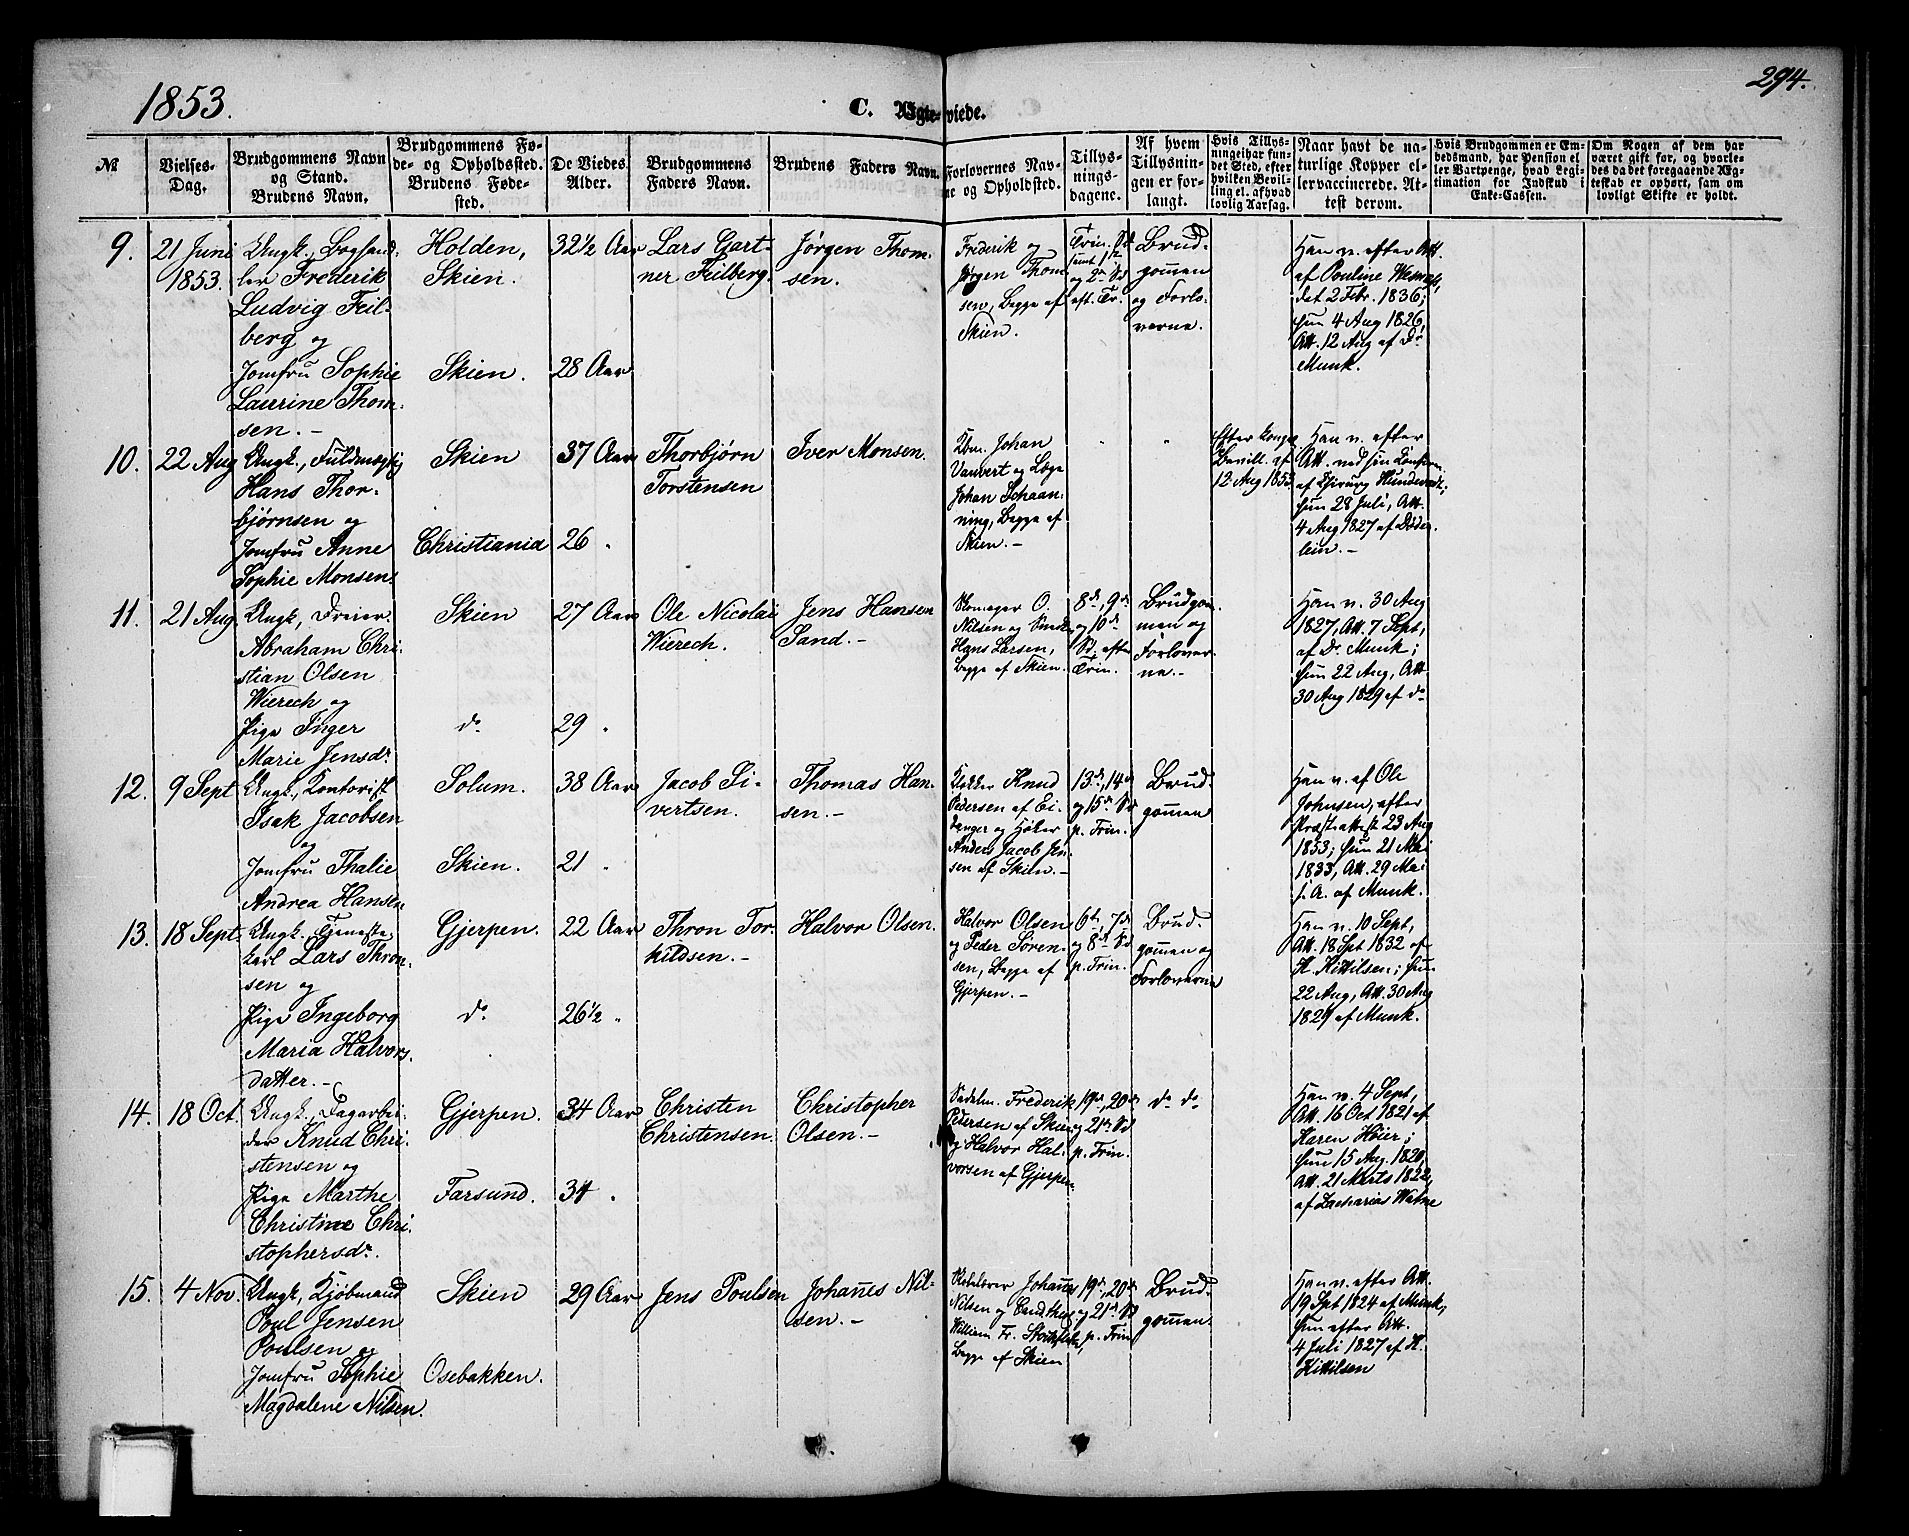 1853.
294.
C. Ægte-viede.
№
Vielses-
Dag.
Brudgommens Navn
og Stand.
Brudens Navn.
Brudgommens Fø-
de- og Opholdssted.
Brudens Føde-
sted.
De Viedes
Alder.
Brudgommens
Faders Navn.
Brudens Faders Navn.
Forlovernes Nav-
ne og Opholdsted.
Tillys-
nings-
dagene.
Af hvem
Tillysnin-
gen er for-
langt.
Hvis Tillys-
ning ei har fun-
det Sted, efter
hvilken Bevil-
ling el. af hvad
lovlig Aarsag.
Naar havt de na-
turlige Kopper el-
ler vaccinerede. At-
test derom.
Hvis Brudgommen er Em-
bedsmand, har Pension el
ler Vartpenge, hvad Legi-
timation for Indskud i
Enke-Cassen.
Om Nogen af dem har
været gift før, og hvorle-
des da det foregaaende Æg-
teskab er ophørt, sam om
lovligt Skifte er holdt.
9.
21 Juni
1853.
Ungk., Boghand-
ler Frederik
Ludvig Feil-
berg og
Jomfru Sophie
Laurine Thom-
sen. -
Holden,
Skien.
Skien.
32½ Aar
28 Aar
Lars Gart-
ner Feilberg.
Jørgen Thom-
sen.
Frederik og
Jørgen Thom-
sen, Begge af
Skien.
Trin. Sd.
samt 1ste
og 2n Sd
eft. Tr.
Brud-
gomen
og Forlo-
verne.
Han v. efter Att.
af Pouline
det 2 Febr. 1836;
hun 4 Aug 1826,
Att. 12 Aug af Dr
Munk.
10.
22 Aug
Ungk., Fuldmægtig
Hans Thor-
bjørnsen og
Jomfru Anne
Sophie Monsen.
Skien
Christiania
37 Aar
26 "
Thorbjørn
Torstensen
Iver Monsen.
Kbm. Johan
Vauvert og Læge
Johan Schaan-
ning, Begge af
Skien. -
"
"
Efter kongel.
Bevill. af
12 Aug 1853
Han v. efter
Att. ved sin Konfirm.
af Chirurg Hundevadt;
hun 28 Juli, Att.
4 Aug 1827 af Døder-
lein. -
11.
21 Aug
Ungk., Dreier
Abraham Chri-
stian Olsen
Wierech og
Pige Inger
Marie Jensdr.
Skien
do
27 Aar
29 "
Ole Nicolai
Wierech.
Jens Hansen
Sand. -
Skomager O.
Nilsen og Smed
Hans Larsen,
Begge af Skien.
8de, 9de
og 10de
Sd. efter
Trin.
Brudgom-
men og
Forlover-
ne. -
Han v. 30 Aug
1827, Att. 7 Sept,
af Dr. Munk;
hun 22 Aug, Att.
30 Aug 1829 af do
12.
9 Sept
Ungk., Kontorist
Isak Jacobsen
og
Jomfru Thalie
Andrea Hansen
Solum.
Skien.
38 Aar
21 "
Jacob Si-
vertsen.
Thomas Han-
sen. -
Klokker Knud
Pedersen af Ei-
danger og Høker
Anders Jacob Jen-
sen af Skien. -
13de, 14de
og 15de Sd
p. Trin.
Brud-
gomen
Han v. af Ole
Johnsen, efter
Præsteattest 23 Aug
1853; hun 21 Mai
1833, Att. 29 Mai
s. A. af Munk.
13.
18 Sept.
Ungk. Tjeneste-
karl Lars Thron-
sen og
Pige Ingeborg
Maria Halvors-
datter. -
Gjerpen.
do
22 Aar
26½ "
Thron Tor-
kildsen. -
Halvor Olsen.
Halvor Olsen
og Peder Søren-
sen, Begge af
Gjerpen. -
6te, 7de
og 8de Sd
p. Trin.
Brud-
gomen og
Forloverne
Han v. 10 Sept,
Att. 18 Spt 1832 af
H. Kittilsen; hun
22 Aug, Att. 30 Aug
1829 af Munk.
14.
18 Oct.
Ungk., Dagarbei-
der Knud Chri-
stensen og
Pige Marthe
Christine Chri-
stophersdr.
Gjerpen.
Farsund.
34 Aar
34 "
Christen
Christensen.
Christopher
Olsen. -
Sadelm. Frederik
Pedersen af Skien
og Halvor Hal-
vorsen af Gjerpen.
19de, 20de
og 21de Sd
p. Trin.
do do
Han v. 4 Sept,
Att. 16 Oct 1821 af
Karen Høier;
hun 15 Aug. 1820,
Att. 21 Marts 1822,
af Zacharias Watne
15.
4 Nov.
Ungk., Kjøbmand
Poul Jensen
Poulsen og
Jomfru Sophie
Magdalene Nilsen.
Skien
Osebakken.
29 Aar
Jens Poulsen
Johañes Nil-
sen. -
Johañes
Nilsen og
William Fr. Stockfleth,
Begge af Skien
19de, 20de
og 21de Sd
p. Trin
Brud-
gomen.
Han v. efter Att.
19 Spt 1824 af Munk,
hun efter Att.
4 Juli 1827 af H.
Kittilsen